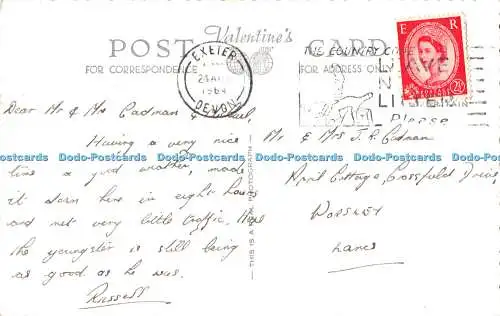 POST Valentine's CARD
FOR CORRESPONDENCE FOR ADDRESS ONLY
EXETER
1964
DEVON
THE COUNTRY CODE
Please
E R
2½
Dear Mr & Mrs Cadman &
Having a very nice
time & good weather, made
it down here in eight hours
and met very little traffic. Hope
the youngster is still being
as good as he was.
Russell
THIS IS A REAL PHOTOGRAPH
Mr & Mrs J.R. Cadman
April Cottage, Crossfield Drive
WORSLEY
Lancs
Dodo-Postcards Dodo-Postcards Dodo-Postcards Dodo-Postcards Dodo-Postcards